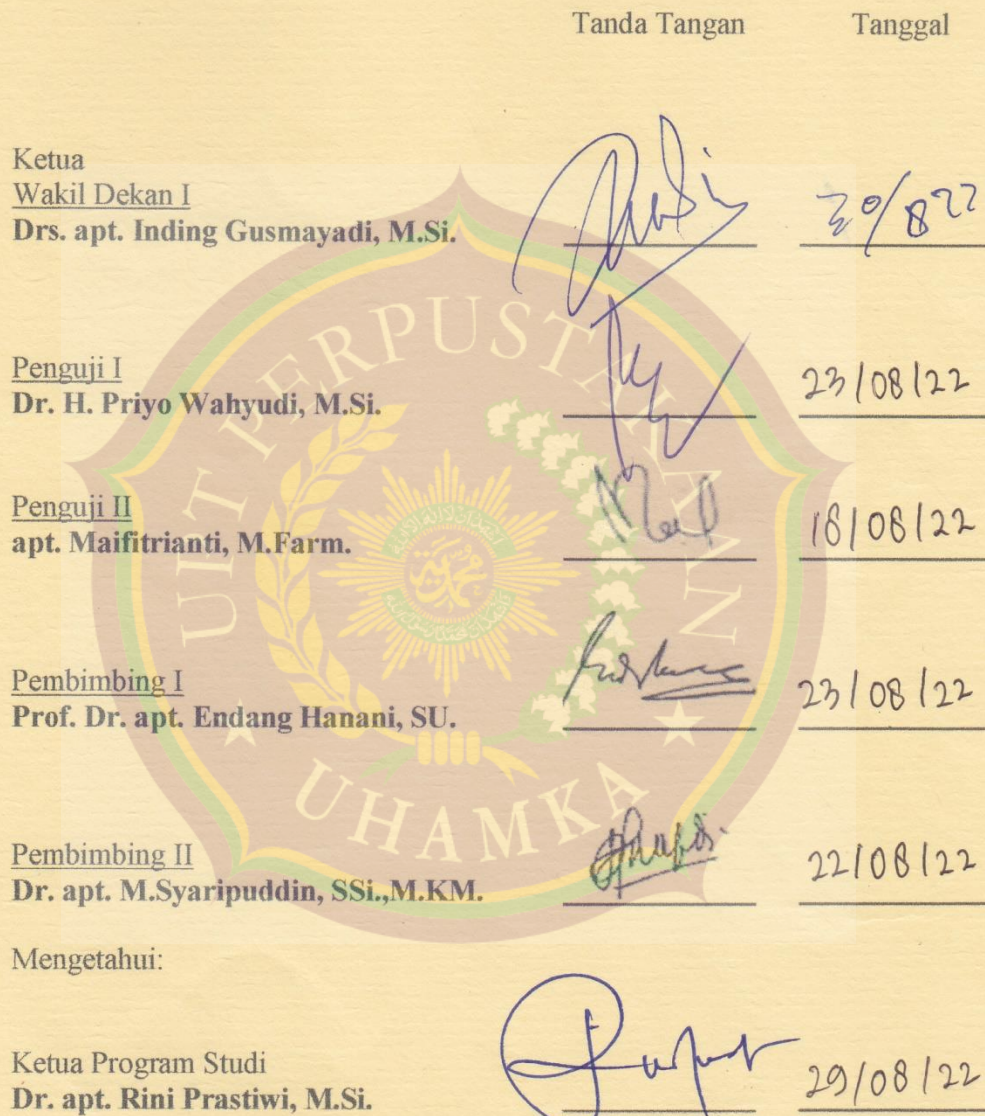 Tanda Tangan Tanggal
Ketua
Wakil Dekan I
Drs. apt. Inding Gusmayadi, M.Si.
30/8 22
Penguji I
Dr. H. Priyo Wahyudi, M.Si.
23/08/22
Penguji II
apt. Maifitrianti, M.Farm.
18/08/22
Pembimbing I
Prof. Dr. apt. Endang Hanani, SU.
23/08/22
Pembimbing II
Dr. apt. M.Syaripuddin, SSi.,M.KM.
22/08/22
Mengetahui:
Ketua Program Studi
Dr. apt. Rini Prastiwi, M.Si.
29/08/22
UPT PERPUSTAKAAN
UHAMKA